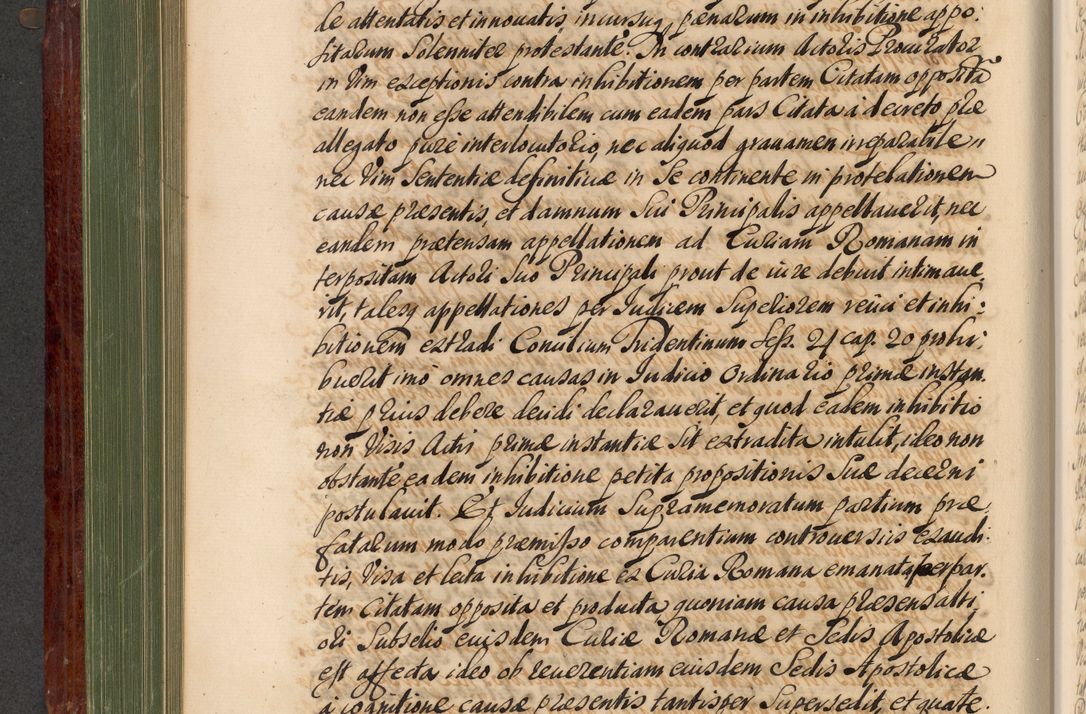 de attentatis et innouatis, incursuq, pænarum in inhibitione appo:
sitarum Solenniter protestante. In contrarium Actoris Procurator
in Vim exceptionis contra inhibitionem per partem Citatam oppositã
eandem non esse attendibilem cum eadem pars Citata à decreto præ
allegato purè interlocutorio, nec aliquod grauamen irreparabile
nec Vim Sententiæ definitiuæ in Se continente in protelationem
causæ præsentis, et damnum Sui Principalis appellauerit, nec
eandem prætensam appellationem ad Curiam Romanam in
terpositam Actori Suo Principali prout de iure debuit intimaue
rit, talesq appellationes per Iudicem Superiorem reiici et inhi:
bitionem extradi Concilium Tridentinum Sess. 24 cap. 20 prohi:
buerit imò omnes causas in Iudicio Ordinario primæ instan
tiæ prius debere decidi declarauerit, et quod eadem inhibitio
non Visis Actis primæ instantiæ Sit extradita intulit, ideo non
obstante eadem inhibitione petita propositionis Suæ decerni
postulauit. Et Iudicium Supramemoratum partium præ
fatarum modo præmisso comparentium controuersiis exaudi
tis, Visa et lecta inhibitione ex Curia Romana emanata per par
tem Citatam opposita et producta quoniam causa præsens alti
ori Subselio eiusdem Curiæ Romanæ et Sedis Apostolicæ
est affecta ideo ob reuerentiam eiusdem Sedis Apostolicæ
à cognitione causæ præsentis tantisper Supersedit, et quate